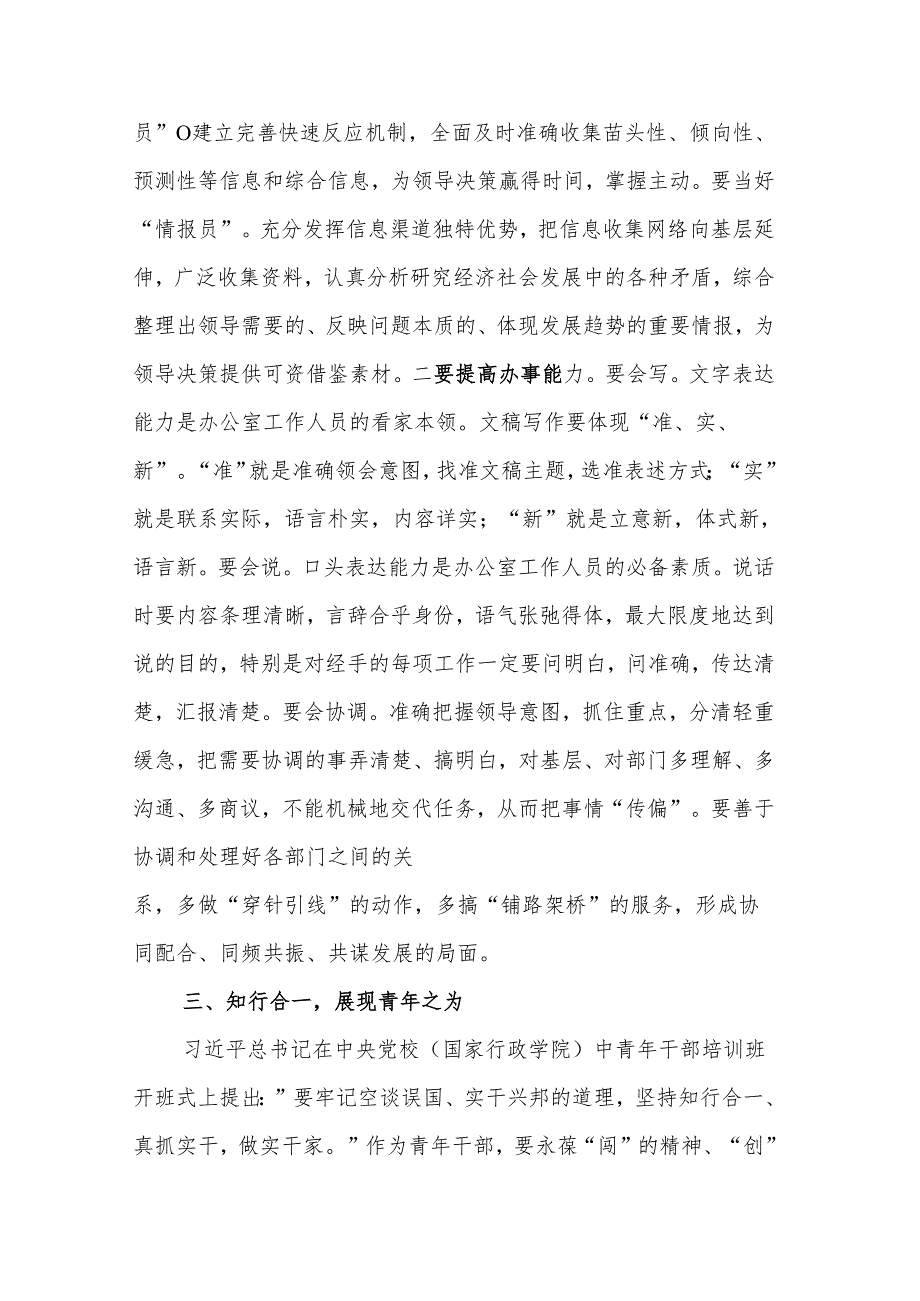 员”O建立完善快速反应机制，全面及时准确收集苗头性、倾向性、
预测性等信息和综合信息，为领导决策赢得时间，掌握主动。要当好
“情报员”。充分发挥信息渠道独特优势，把信息收集网络向基层延
伸，广泛收集资料，认真分析研究经济社会发展中的各种矛盾，综合
整理出领导需要的、反映问题本质的、体现发展趋势的重要情报，为
领导决策提供可资借鉴素材。二要提高办事能力。要会写。文字表达
能力是办公室工作人员的看家本领。文稿写作要体现“准、实、
新”。“准”就是准确领会意图，找准文稿主题，选准表述方式；“实”
就是联系实际，语言朴实，内容详实；“新”就是立意新，体式新，
语言新。要会说。口头表达能力是办公室工作人员的必备素质。说话
时要内容条理清晰，言辞合乎身份，语气张弛得体，最大限度地达到
说的目的，特别是对经手的每项工作一定要问明白，问准确，传达清
楚，汇报清楚。要会协调。准确把握领导意图，抓住重点，分清轻重
缓急，把需要协调的事弄清楚、搞明白，对基层、对部门多理解、多
沟通、多商议，不能机械地交代任务，从而把事情“传偏”。要善于
协调和处理好各部门之间的关
系，多做“穿针引线”的动作，多搞“铺路架桥”的服务，形成协
同配合、同频共振、共谋发展的局面。
三、知行合一，展现青年之为
习近平总书记在中央党校（国家行政学院）中青年干部培训班
开班式上提出：”要牢记空谈误国、实干兴邦的道理，坚持知行合一、
真抓实干，做实干家。”作为青年干部，要永葆“闯”的精神、“创”